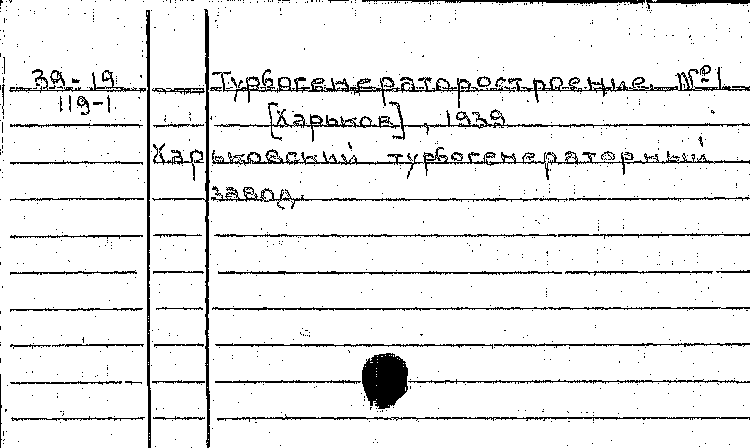 39-19 Турбогенераторостроение. №1
119-1 [Харьков], 1939
Харьковский турбогенераторный
завод.